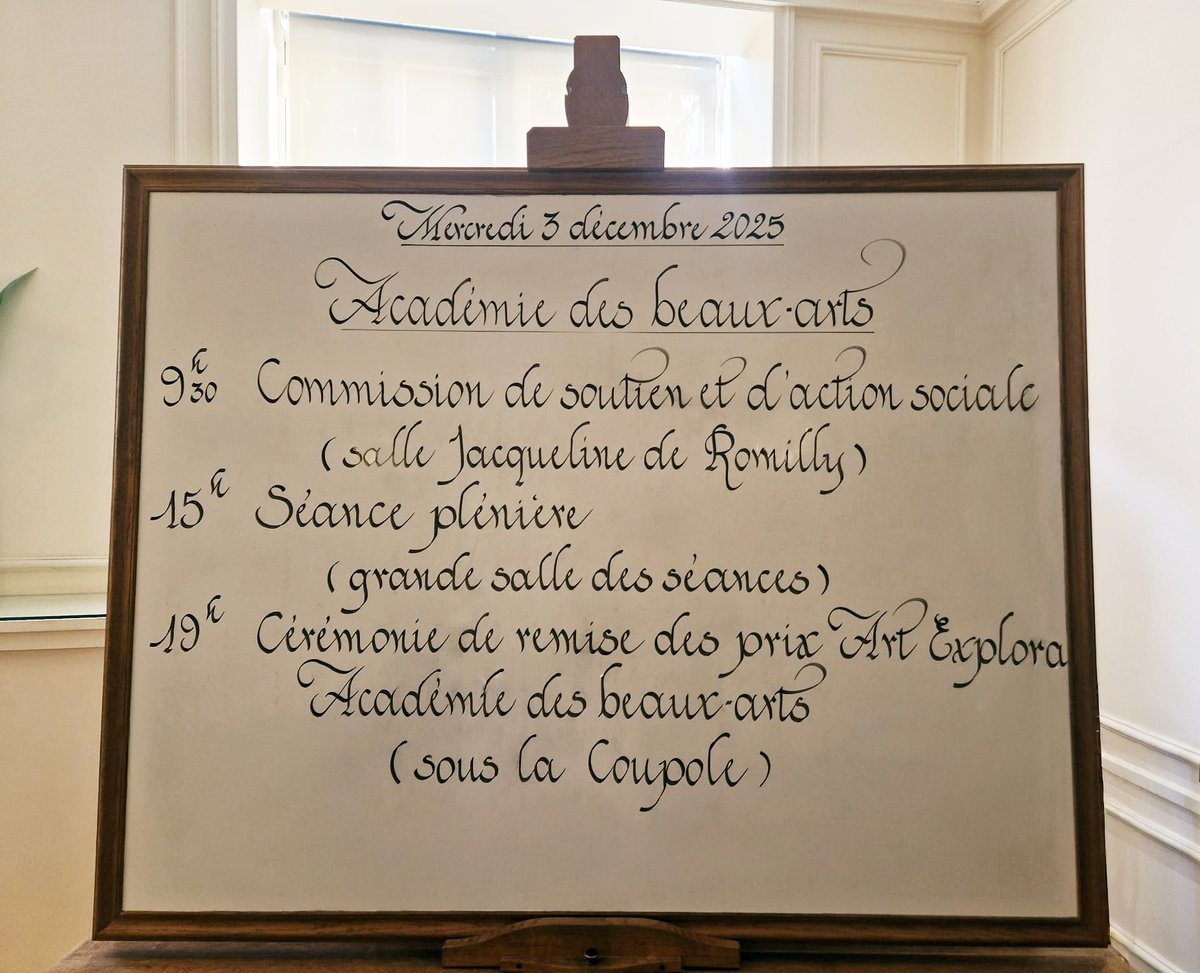 Mercredi 3 décembre 2025
Académie des beaux-arts
9h30 Commission de soutien et d'action sociale
(salle Jacqueline de Romilly)
15h Séance plénière
(grande salle des séances)
19h Cérémonie de remise des prix Art Explora
Académie des beaux-arts
(sous la Coupole)